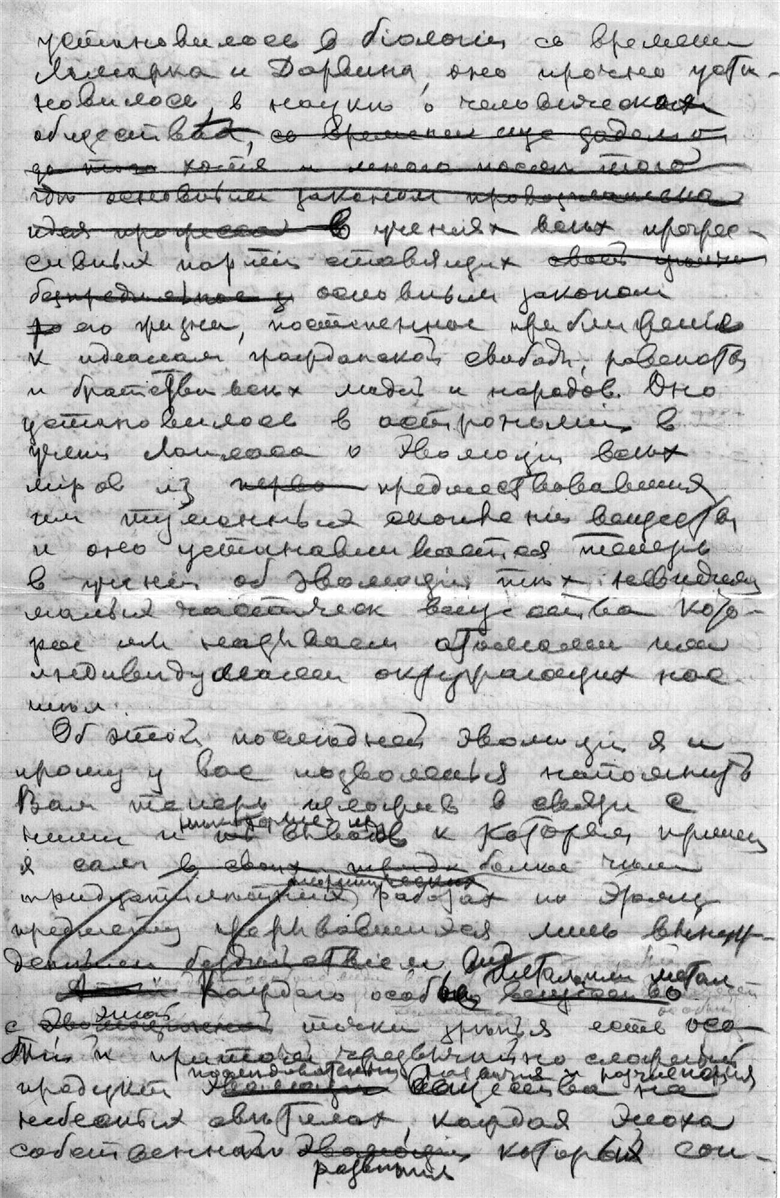 установилось в біологіи со времени
Ламарка и Дарвина, оно прочно уста-
новилось, в науки о человеческих
обществах, со времени еще
до того хотя и много после того
основным законом провозглашена
идея прогресса в ученіях всех прогрес-
сивных партій ставящих своей
безпредельное основным законом
его жизни, постепенное приближение
к идеалам гражданской свободы, равенства
и братства всех людей и народов. Оно
установилось в астрономіи, в
ученіи Лапласа о эволюціи всех
міров из перво предшествовавших
им туманных скопленій вещества
и оно устанавливается теперь
в ученіи об эволюціи тех невидимо
малых частичек вещества кото-
рые мы называем атомами или
индивидуумами окружающих нас
тел.
Об этой последней эволюціи я и
прошу у вас позволенья напомнить
Вам теперь изложив в связи с
ними и некоторые из выводов к которым пришел
я сам в своих более чем
тридцатилетних работах по этому
предмету прерывавшихся лишь вынуж-
денным бездействием
Каждого особого металл или метал
с этой точки зренія есть осо-
бый и притом чрезвычайно сложный
последовательных
продукт эволюціи вещества на
небесных светилах, каждая эпоха
собственного эволюціи которых соп-
развитія